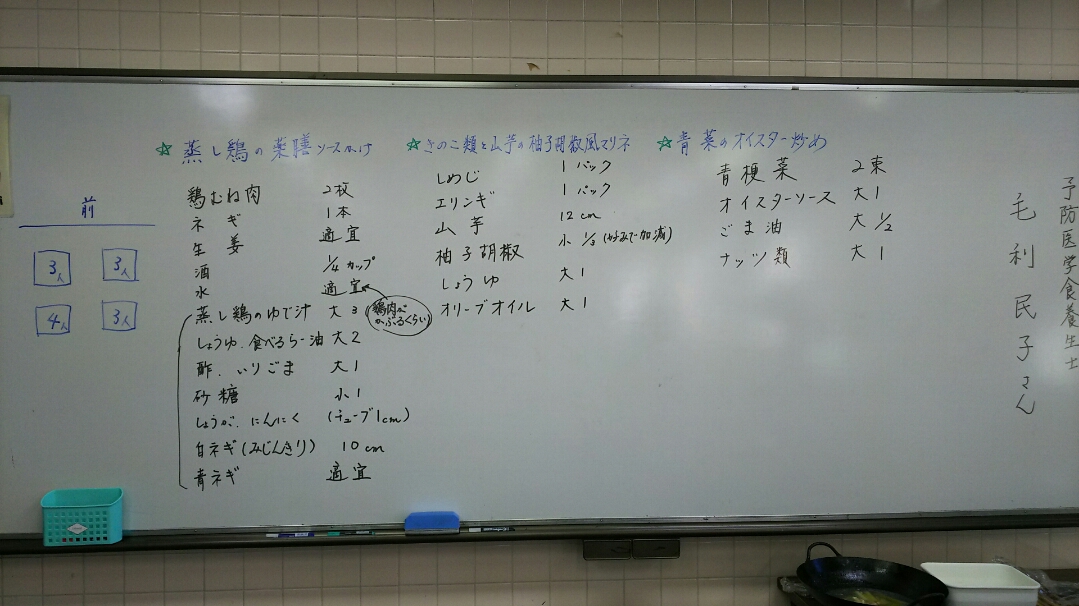 ☆ 蒸し鶏の薬膳ソースかけ
鶏むね肉 2枚
ネギ 1本
生姜 適宜
酒 1/4カップ
水 適宜
鶏肉がかぶるくらい
蒸し鶏のゆで汁 大3
しょうゆ、食べるらー油 大2
酢、いりごま 大1
砂糖 小1
しょうが、にんにく (チューブ1cm)
白ネギ(みじんきり) 10cm
青ネギ 適宜
☆ きのこ類と山芋の柚子胡椒風マリネ
しめじ 1パック
エリンギ 1パック
山芋 12cm
柚子胡椒 小1/3(好みで加減)
しょうゆ 大1
オリーブオイル 大1
☆ 青菜のオイスター炒め
青梗菜 2束
オイスターソース 大1
ごま油 大1/2
ナッツ類 大1
予防医学食養生士
毛利民子さん
前
3人 3人
4人 3人